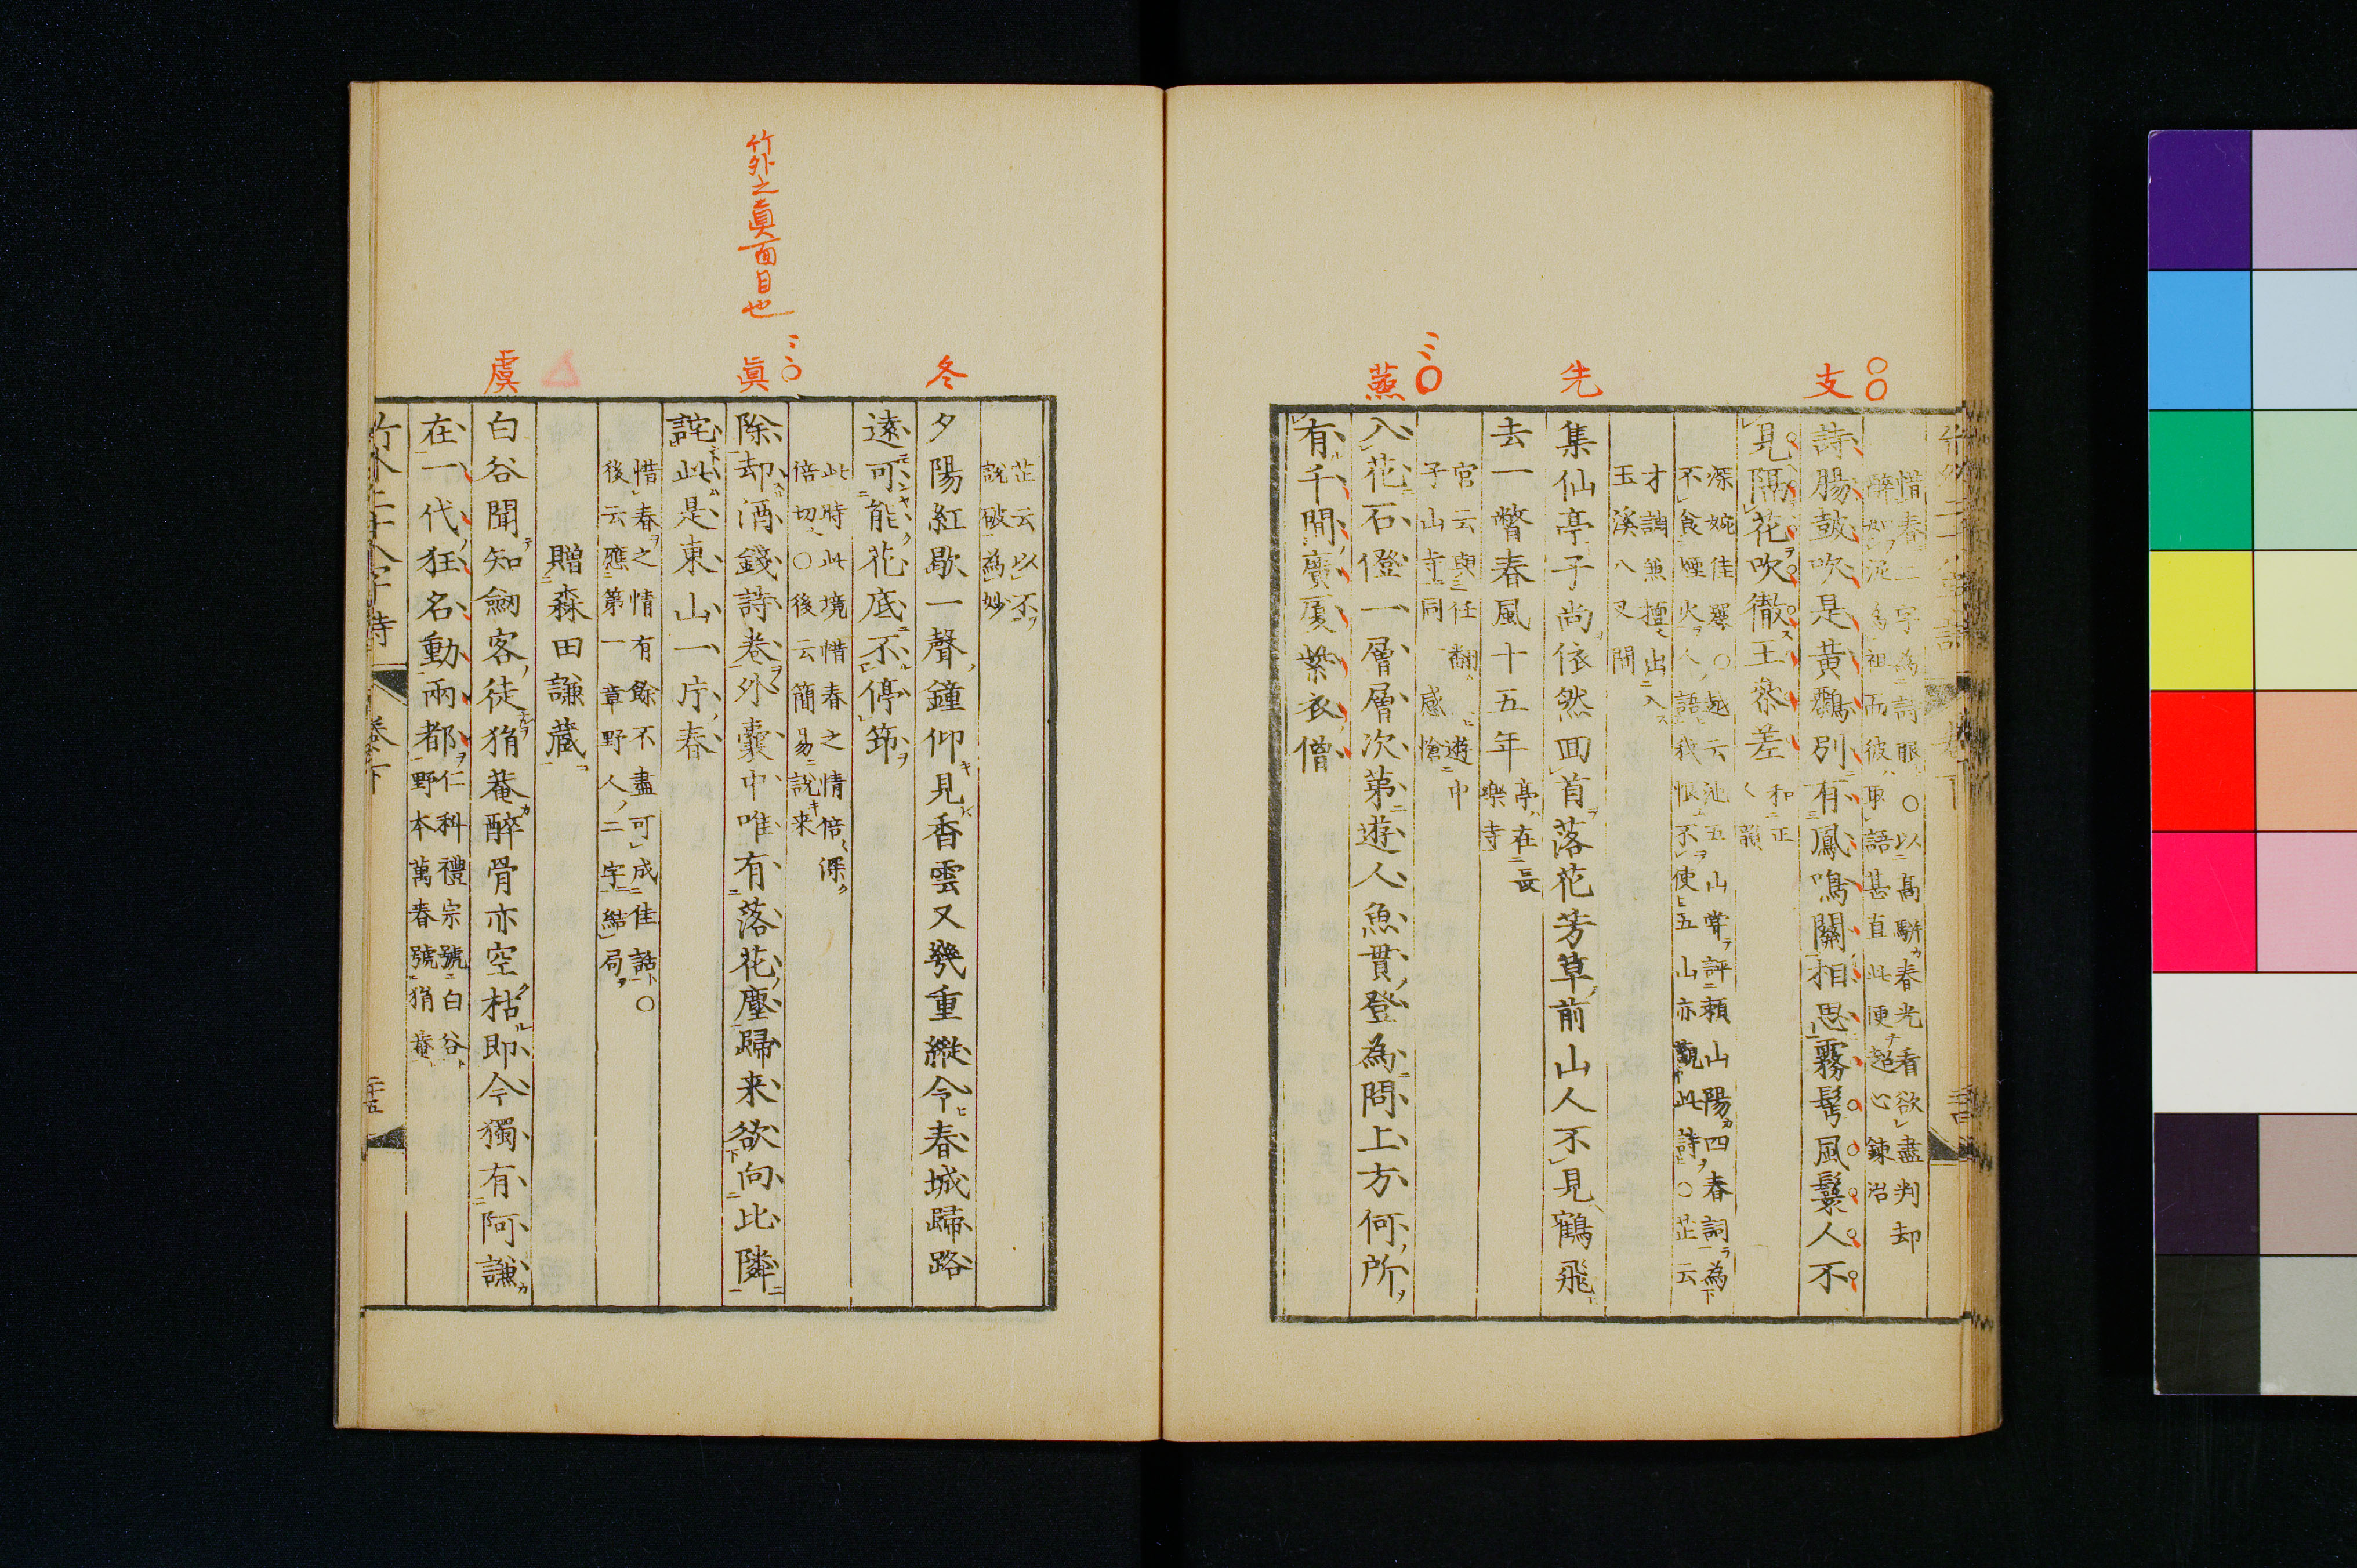 支
先
蒸
惜春二字為詩眼○以高駢春光看欲盡判却
醉如泥為祖而彼取語甚直此便超心鍊冶
詩腸鼓吹是黃鸝別有鳳鳴關相思霧髩風鬟人不
見隔花吹徹玉參差
和正韻
深婉佳選○越云池五山嘗評賴山陽四春詞為
不食煙火人語我恨不使五山亦觀此詩○芷云
才調兼擅出入
玉溪八叉間
集仙亭子尚依然回首落花芳草前山人不見鶴飛
去一瞥春風十五年
亭在長
樂寺
官云與任翻遊中
子山寺同一感愴
入花石磴一層層次第遊人魚貫登為問上方何所
有千間廣廈紫衣僧
竹外之真面目也
冬
真
虞
芷云以不
說破為妙
夕陽紅歇一聲鐘仰見香雲又幾重縱令春城歸路
遠可能花底不停筇
此時此境惜春之情倍深
倍切○後云簡易說来
除却酒錢詩卷外囊中唯有落花塵歸来欲向比隣
詫此是東山一片春
惜春之情有餘不盡可成佳話○
後云應第一章野人二字結局
贈森田謙藏
白谷聞知劒客徒狷菴醉骨亦空枯即今獨有阿謙
在一代狂名動兩都
仁科禮宗號白谷
野本萬春號狷菴
竹外二十八字詩
卷下
二十五